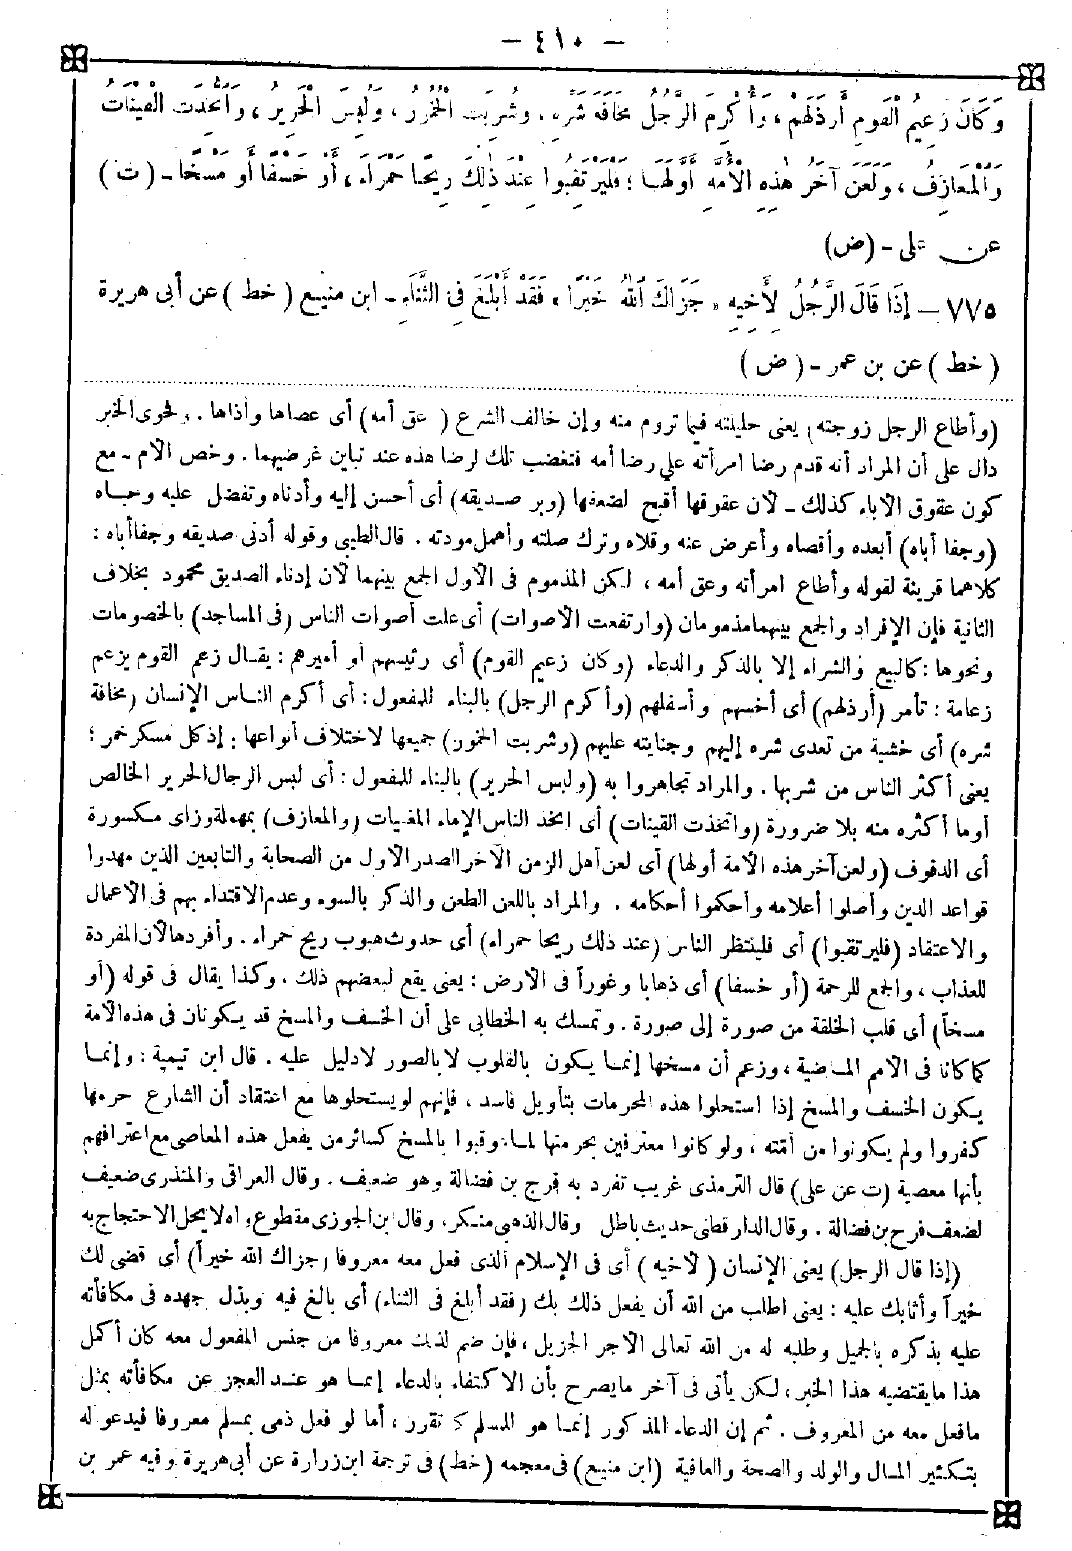 — ٤١٠ —
وَكَانَ زَعِيمُ الْقَوْمِ أَرْذَلَهُمْ، وَأُكْرِمَ الرَّجُلُ مَخَافَةَ شَرِّهِ، وَشُرِبَتِ الْخُمُورُ، وَلُبِسَ الْحَرِيرُ، وَاتُّخِذَتِ الْقَيْنَاتُ
وَالْمَعَازِفُ، وَلَعَنَ آخِرُ هٰذِهِ الْأُمَّةِ أَوَّلَهَا؛ فَلْيَرْتَقِبُوا عِنْدَ ذٰلِكَ رِيحًا حَمْرَاءَ، أَوْ خَسْفًا أَوْ مَسْخًا ـ (ت)
عن على ـ (ض)
٧٧٥ — إِذَا قَالَ الرَّجُلُ لِأَخِيهِ «جَزَاكَ اللّٰهُ خَيْرًا» فَقَدْ أَبْلَغَ فِى الثَّنَاءِ ـ ابن منيع (خط) عن أبى هريرة
(خط) عن بن عمر ـ (ض)
(وأطاع الرجل زوجته) يعنى حليلته فيما تروم منه وإن خالف الشرع (عق أمه) أى عصاها وأذاها. وفحوى الخبر
دال على أن المراد أنه قدم رضا امرأته على رضا أمه فتغضب تلك لرضا هذه عند تباين غرضيهما. وخص الأم ـ مع
كون عقوق الآباء كذلك ـ لأن عقوقها أقبح لضعفها (وبر صديقه) أى أحسن إليه وأدناه وتفضل عليه وحباه
(وجفا أباه) أبعده وأقصاه وأعرض عنه وقلاه وترك صلته وأهمل مودته. قال الطيبى وقوله أدنى صديقه وجفا أباه:
كلاهما قرينة لقوله وأطاع امرأته وعق أمه، لكن المذموم فى الأول الجمع بينهما لأن إدناء الصديق محمود بخلاف
الثانية فإن الإفراد والجمع بينهما مذمومان (وارتفعت الأصوات) أى علت أصوات الناس (فى المساجد) بالخصومات
ونحوها: كالبيع والشراء إلا بالذكر والدعاء (وكان زعيم القوم) أى رئيسهم أو أميرهم: يقال زعم القوم يزعم
زعامة: تأمر (أرذلهم) أى أخسهم وأسفلهم (وأكرم الرجل) بالبناء للمفعول: أى أكرم الناس الإنسان (مخافة
شره) أى خشية من تعدى شره إليهم وجنايته عليهم (وشربت الخمور) جميعها لاختلاف أنواعها: إذ كل مسكر خمر؛
يعنى أكثر الناس من شربها. والمراد تجاهروا به (ولبس الحرير) بالبناء للمفعول: أى لبس الرجال الحرير الخالص
أو ما أكثره منه بلا ضرورة (واتخذت القينات) أى اتخذ الناس الإماء المغنيات (والمعازف) بمهملة وزاى مكسورة
أى الدفوف (ولعن آخر هذه الأمة أولها) أى لعن أهل الزمن الآخر الصدر الأول من الصحابة والتابعين الذين مهدوا
قواعد الدين وأصلوا أعلامه وأحكموا أحكامه. والمراد باللعن الطعن والذكر بالسوء وعدم الاقتداء بهم فى الأعمال
والاعتقاد (فليرتقبوا) أى فلينتظر الناس (عند ذلك ريحا حمراء) أى حدوث هبوب ريح حمراء. وأفردها لأن المفردة
للعذاب، والجمع للرحمة (أو خسفا) أى ذهابا وغوراً فى الأرض: يعنى يقع لبعضهم ذلك. وكذا يقال فى قوله (أو
مسخاً) أى قلب الخلقة من صورة إلى صورة. وتمسك به الخطابى على أن الخسف والمسخ قد يكونان فى هذه الأمة
كما كانا فى الأمم الماضية، وزعم أن مسخها إنما يكون بالقلوب لا بالصور لا دليل عليه. قال ابن تيمية: وإنما
يكون الخسف والمسخ إذا استحلوا هذه المحرمات بتأويل فاسد، فإنهم لو يستحلوها مع اعتقاد أن الشارع حرمها
كفروا ولم يكونوا من أمته، ولو كانوا معترفين بحرمتها لما عوقبوا بالمسخ كسائر من يفعل هذه المعاصى مع اعترافهم
بأنها معصية (ت عن على) قال الترمذى غريب تفرد به فرج بن فضالة وهو ضعيف. وقال العراقى والمنذرى ضعيف
لضعف فرح بن فضالة. وقال الدارقطنى حديث باطل وقال الذهبى منكر، وقال ابن الجوزى مقطوع واه لا يحل الاحتجاج به
(إذا قال الرجل) يعنى الإنسان (لأخيه) أى فى الإسلام الذى فعل معه معروفا (جزاك الله خيراً) أى قضى لك
خيراً وأثابك عليه: يعنى اطلب من الله أن يفعل ذلك بك (فقد أبلغ فى الثناء) أى بالغ فيه وبذل جهده فى مكافأته
عليه بذكره بالجميل وطلبه له من الله تعالى الأجر الجزيل، فإن ضم لذلك معروفا من جنس المفعول معه كان أكمل
هذا ما يقتضيه هذا الخبر، لكن يأتى فى آخر ما يصرح بأن الاكتفاء بالدعاء إنما هو عند العجز عن مكافأته بمثل
ما فعل معه من المعروف. ثم إن الدعاء المذكور إنما هو للمسلم كما تقرر، أما لو فعل ذمى بمسلم معروفا فيدعو له
بتكثير المال والولد والصحة والعافية (ابن منيع) فى معجمه (خط) فى ترجمة ابن زرارة عن أبى هريرة وفيه عمر بن